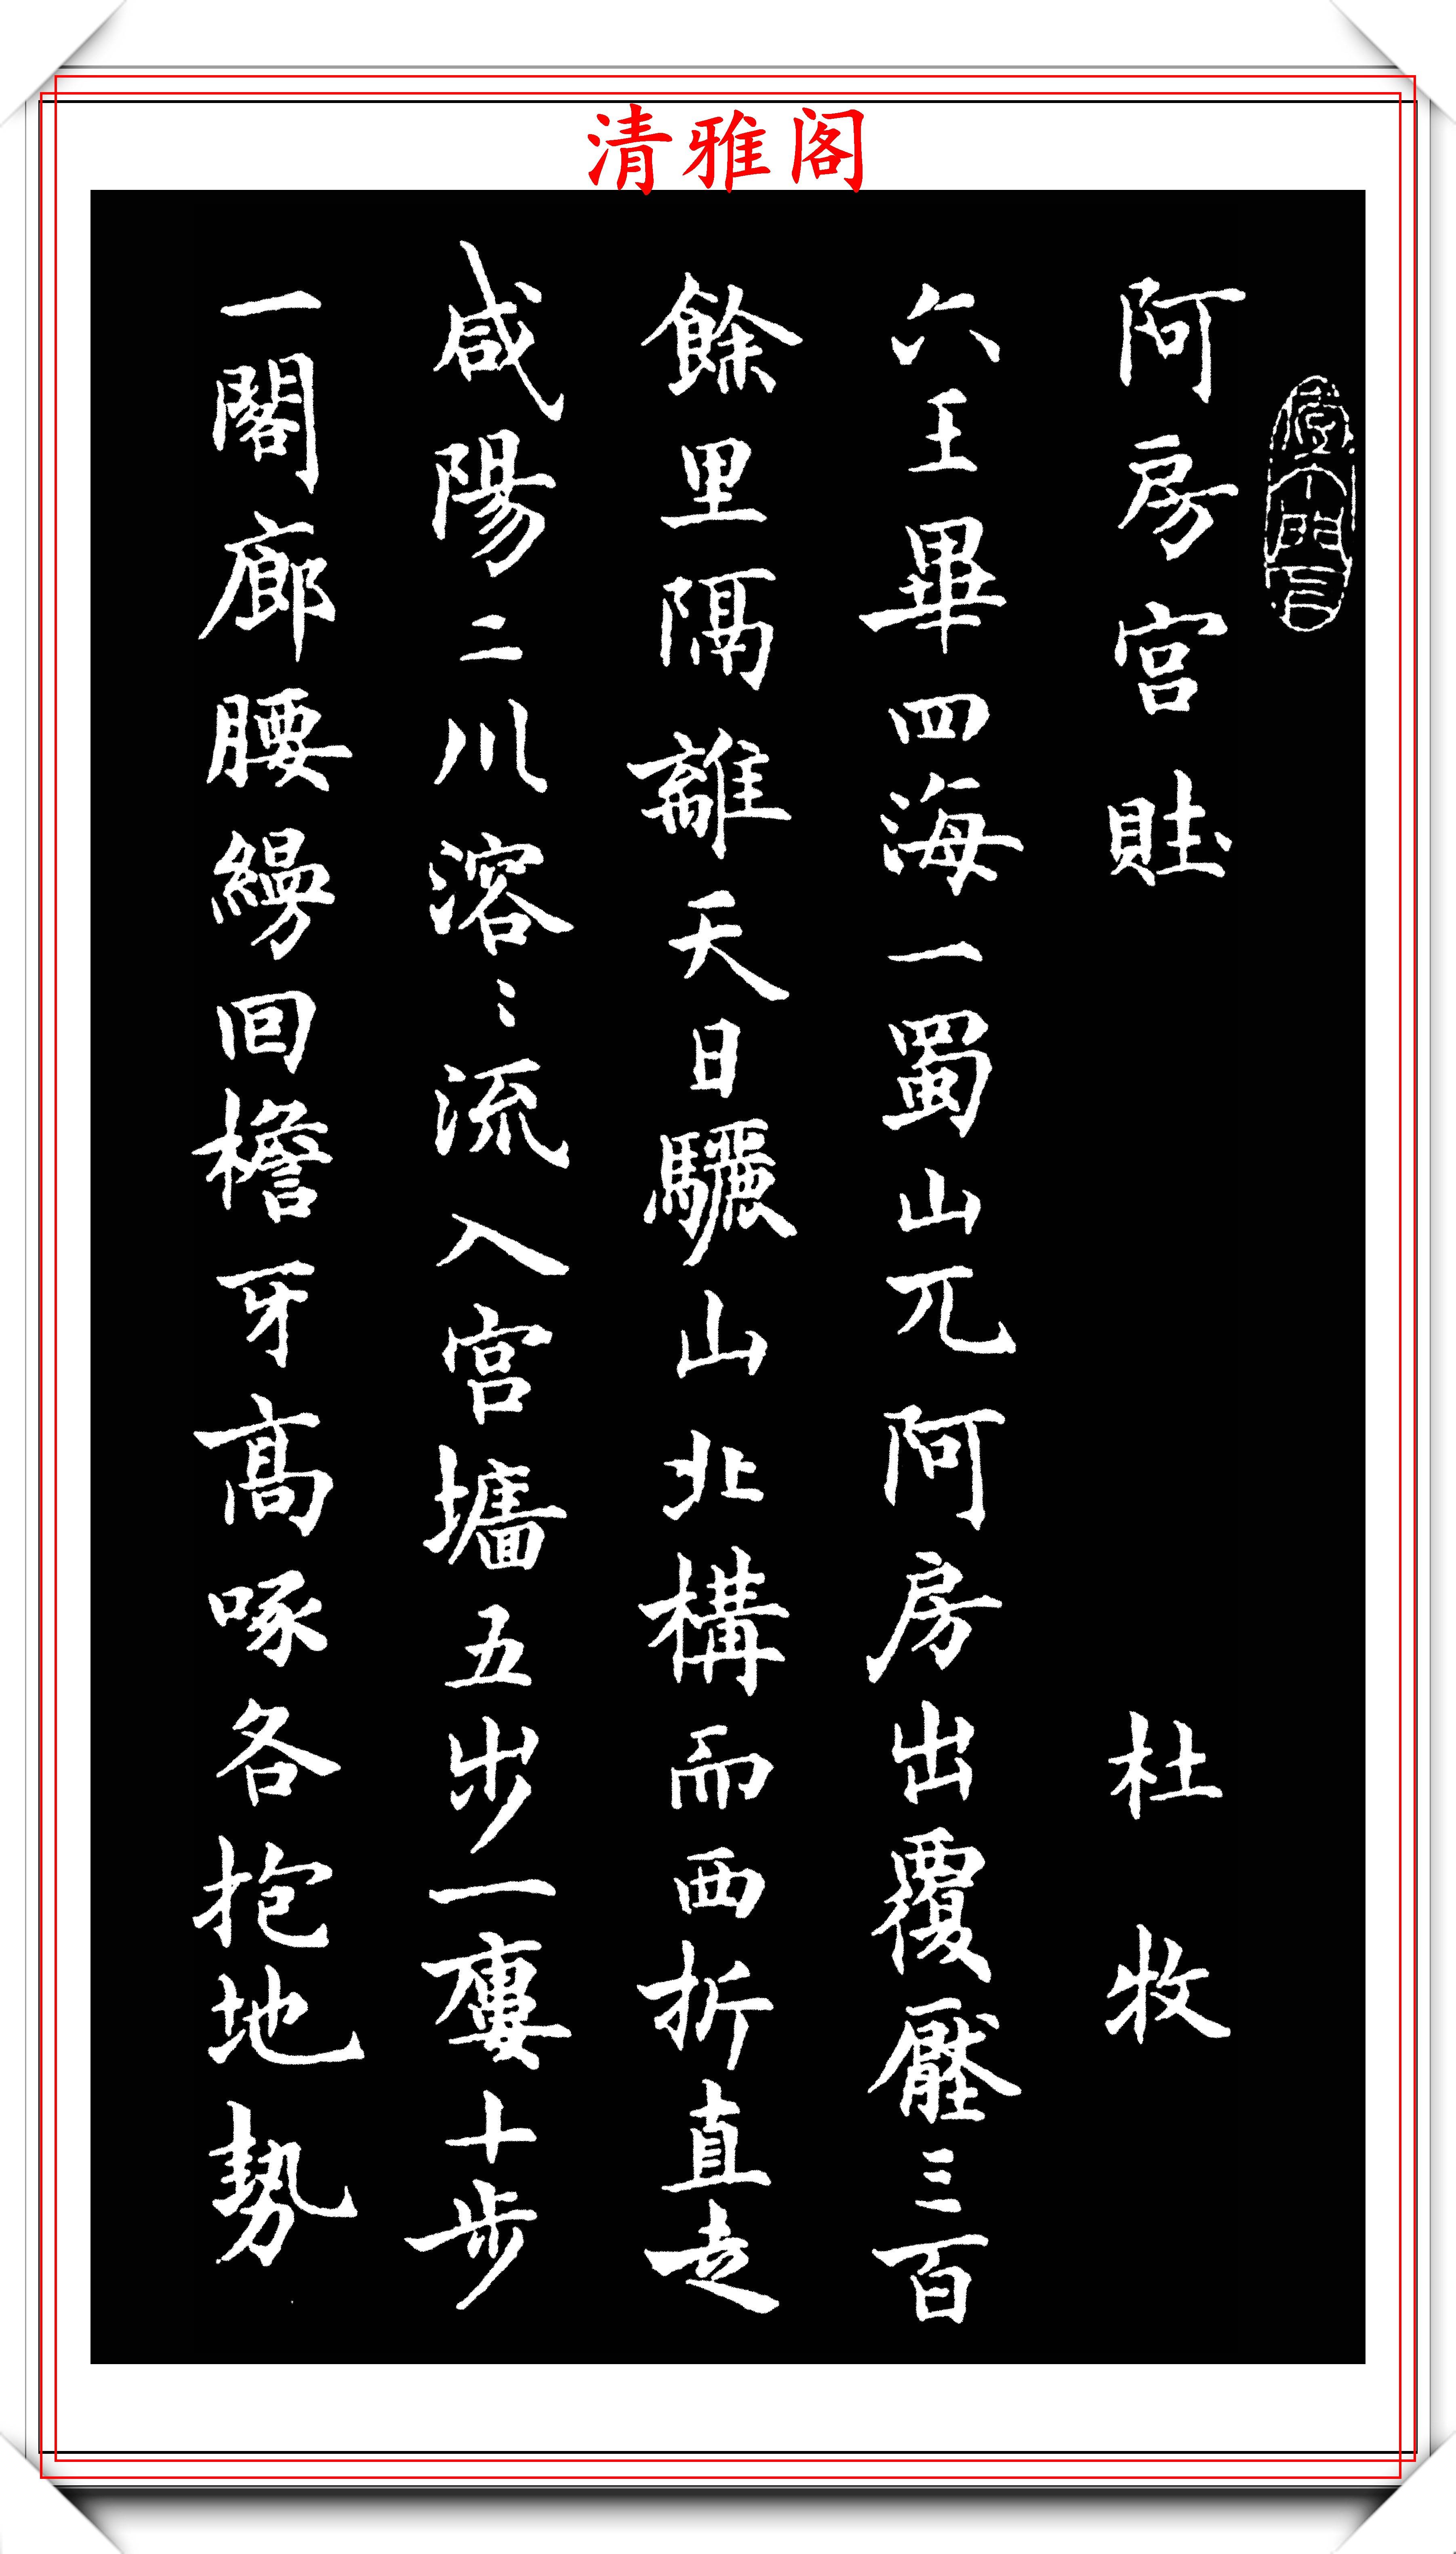 清雅阁
阿房宮賦 杜牧
六王畢四海一蜀山兀阿房出覆壓三百
餘里隔離天日驪山北構而西折直走
咸陽二川溶〻流入宮墻五步一樓十步
一閣廊腰縵回檐牙高啄各抱地勢